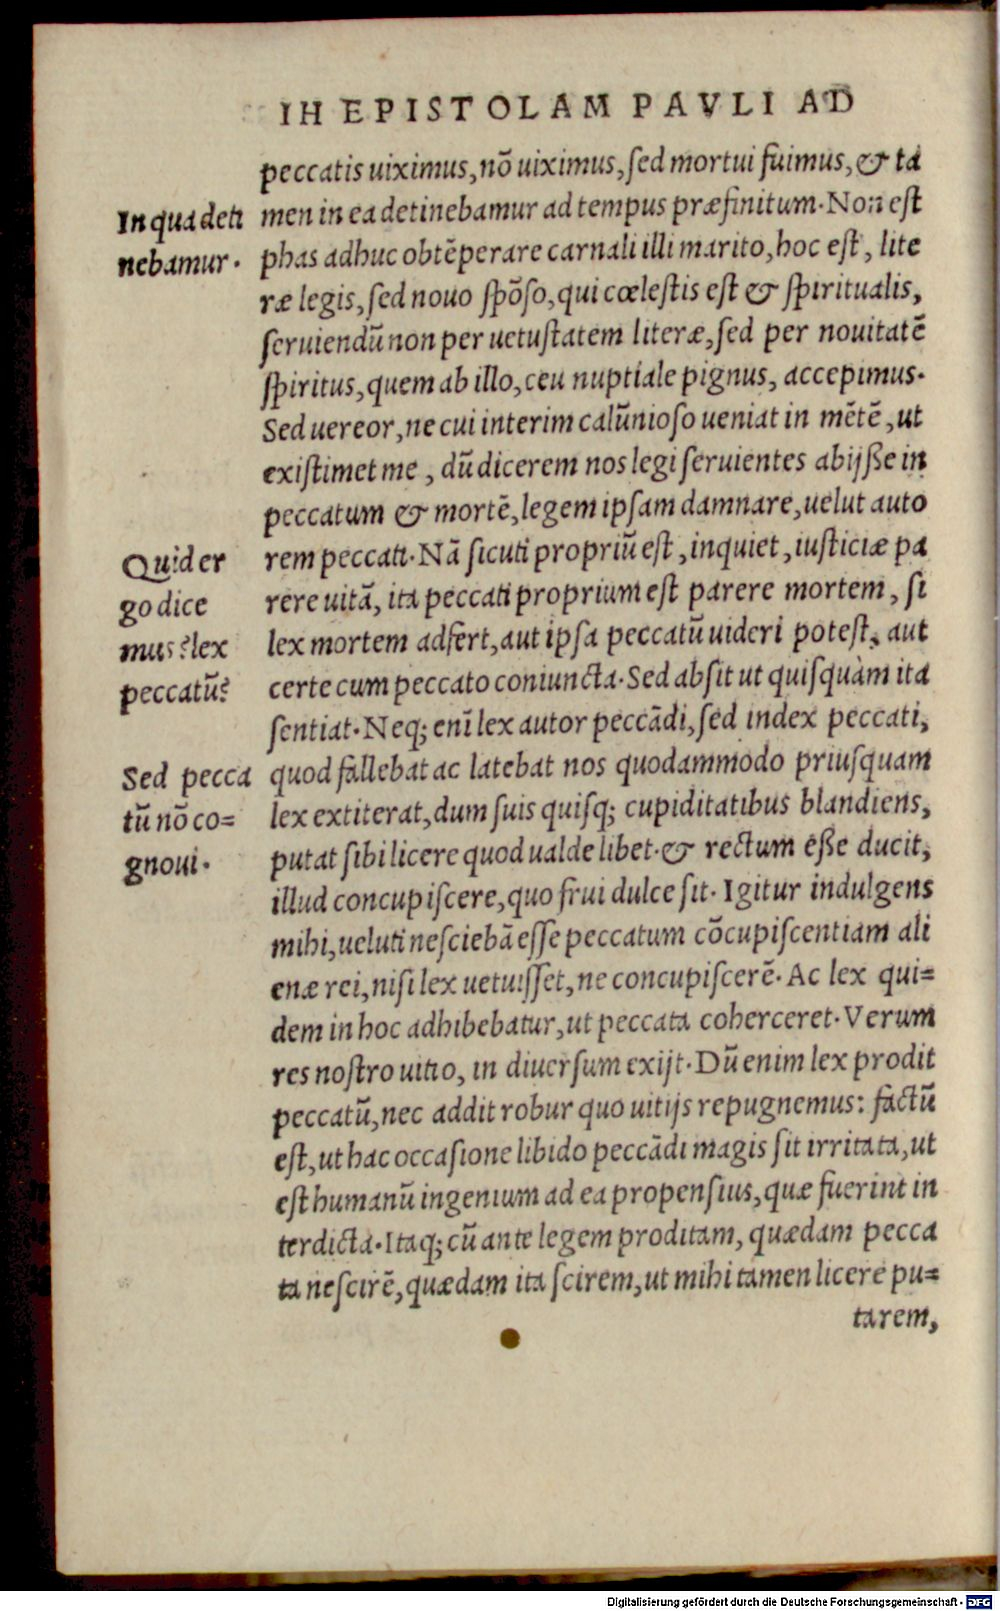 IH EPISTOLAM PAVLI AD
peccatis uiximus, nõ uiximus, ſed mortui fuimus, & ta
In qua deti
nebamur.
men in ea detinebamur ad tempus præfinitum. Non eſt
phas adhuc obtẽperare carnali illi marito, hoc eſt, lite
ræ legis, ſed nouo ſpõſo, qui cœleſtis eſt & ſpiritualis,
ſeruiendũ non per uetuſtatem literæ, ſed per nouitatẽ
ſpiritus, quem ab illo, ceu nuptiale pignus, accepimus.
Sed uereor, ne cui interim calũnioſo ueniat in mẽtẽ, ut
exiſtimet me, dũ dicerem nos legi ſeruientes abijße in
peccatum & mortẽ, legem ipſam damnare, uelut auto
Quid er
go dice
mus? lex
peccatũ?
rem peccati. Nã ſicuti propriũ eſt, inquiet, iuſticiæ pa
rere uitã, ita peccati proprium eſt parere mortem, ſi
lex mortem adfert, aut ipſa peccatũ uideri poteſt, aut
certe cum peccato coniuncta. Sed abſit ut quiſquàm ita
ſentiat. Neq; enĩ lex autor peccãdi, ſed index peccati,
Sed pecca
tũ nõ co=
gnoui.
quod fallebat ac latebat nos quodammodo priuſquam
lex extiterat, dum ſuis quiſq; cupiditatibus blandiens,
putat ſibi licere quod ualde libet. & rectum eße ducit,
illud concupiſcere, quo frui dulce ſit. Igitur indulgens
mihi, ueluti neſciebã eſſe peccatum cõcupiſcentiam ali
enæ rei, niſi lex uetuiſſet, ne concupiſcerẽ. Ac lex qui=
dem in hoc adhibebatur, ut peccata coherceret. Verum
res noſtro uitio, in diuerſum exijt. Dũ enim lex prodit
peccatũ, nec addit robur quo uitijs repugnemus: factũ
eſt, ut hac occaſione libido peccãdi magis ſit irritata, ut
eſt humanũ ingenium ad ea propenſius, quæ fuerint in
terdicta. Itaq; cũ ante legem proditam, quædam pecca
ta neſcirẽ, quædam ita ſcirem, ut mihi tamen licere pu=
tarem,
Digitalisierung gefördert durch die Deutsche Forschungsgemeinschaft - DFG